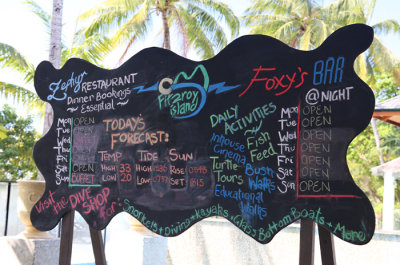 Zephyr RESTAURANT
Dinner Bookings
~ Essential ~
Mon OPEN
Tue
Wed
Thu
Fri
Sat
Sun BUFFET
TODAY'S
FORECAST:
TEMP TIDE SUN
HIGH 33
LOW 20
HIGH
LOW
RISE
SET
fitzroy
island
DAILY
ACTIVITIES
~ Fish
Feed
Inhouse
Cinema
Turtle
Tours
Bush
Walks
Educational
Walks
Foxy's BAR
@ NIGHT
Mon: OPEN
Tue: OPEN
Wed: OPEN
Thu: OPEN
Fri: OPEN
Sat: OPEN
Sun: OPEN
Visit the DIVE SHOP
for: Snorkels + Diving + Kayaks + Glass Bottom Boats + More